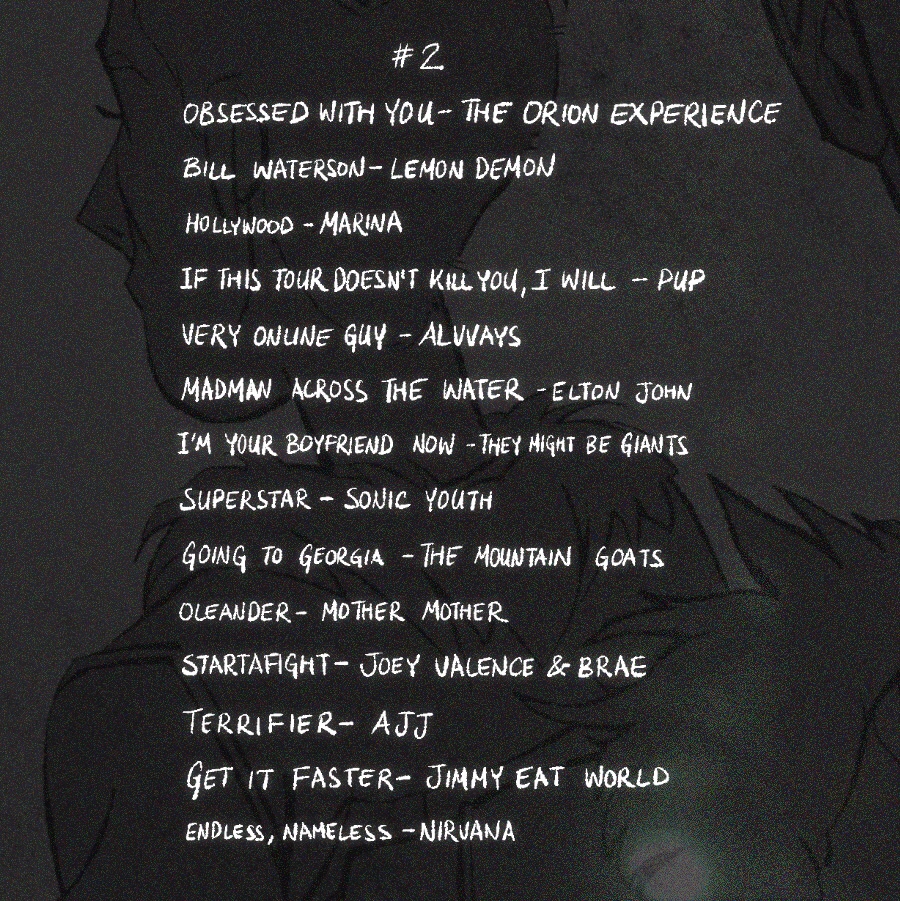 #2
OBSESSED WITH YOU- THE ORION EXPERIENCE
BILL WATERSON- LEMON DEMON
HOLLYWOOD - MARINA
IF THIS TOUR DOESN'T KILL YOU, I WILL - PUP
VERY ONLINE GUY - ALVVAYS
MADMAN ACROSS THE WATER - ELTON JOHN
I'M YOUR BOYFRIEND NOW - THEY MIGHT BE GIANTS
SUPERSTAR - SONIC YOUTH
GOING TO GEORGIA - THE MOUNTAIN GOATS
OLEANDER- MOTHER MOTHER
STARTAFIGHT- JOEY VALENCE & BRAE
TERRIFIER- AJJ
GET IT FASTER- JIMMY EAT WORLD
ENDLESS, NAMELESS - NIRVANA